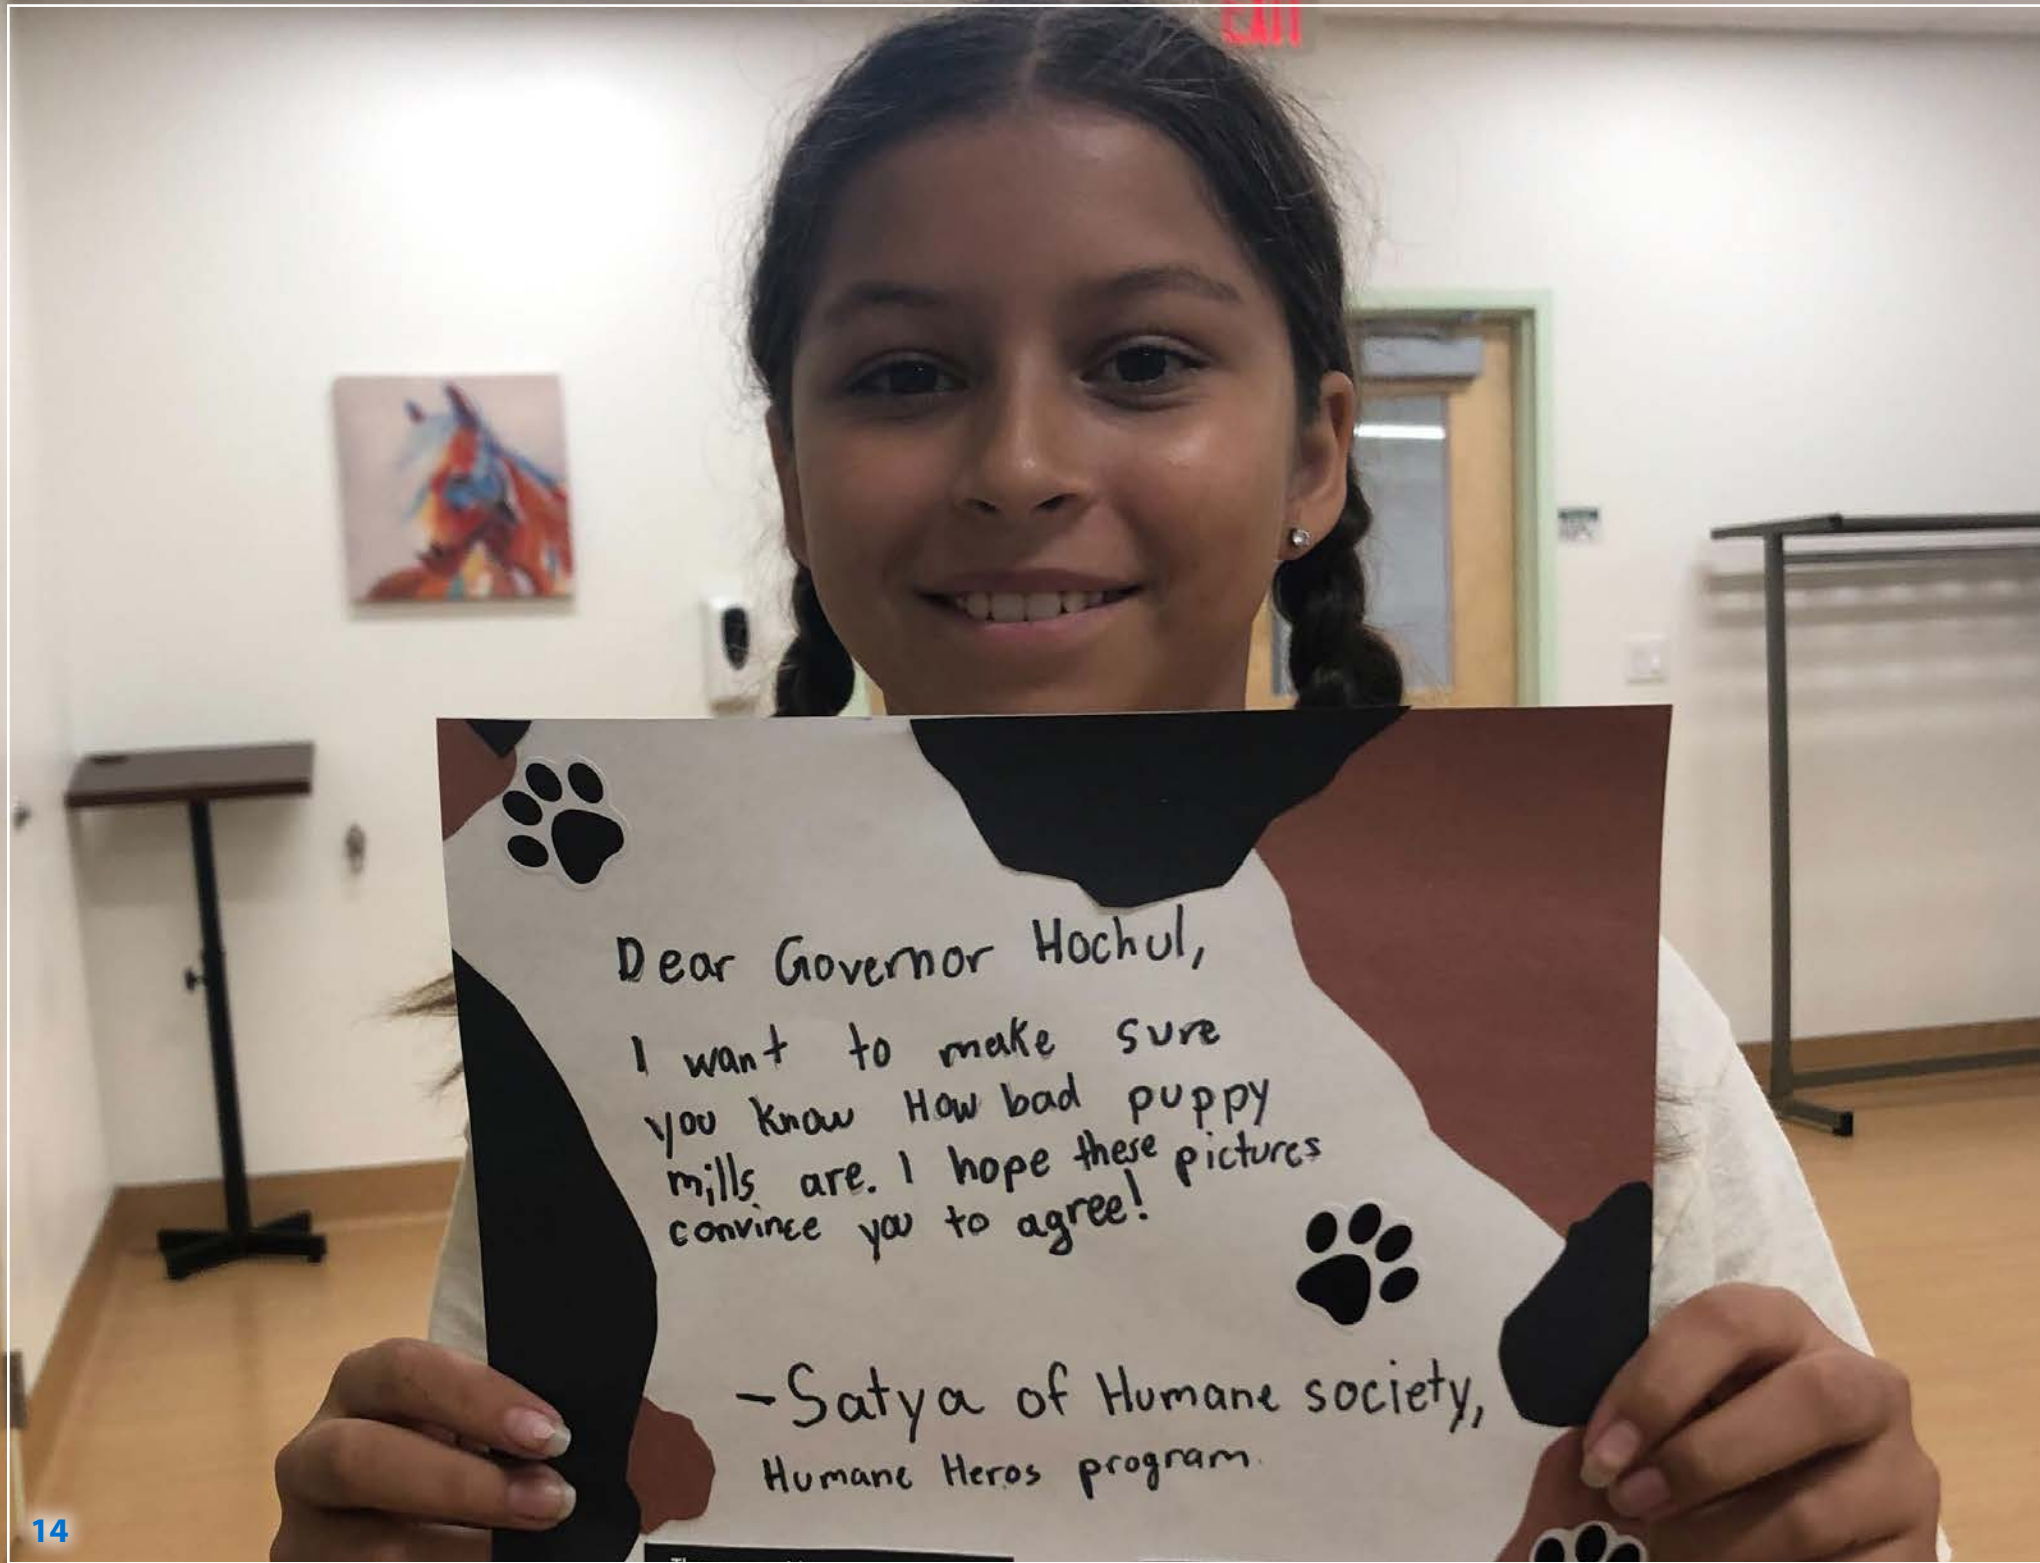 EXIT
Dear Governor Hochul,
I want to make sure
you know How bad puppy
mills are. I hope these pictures
convince you to agree!
-Satya of Humane society,
Humane Heros program.
14